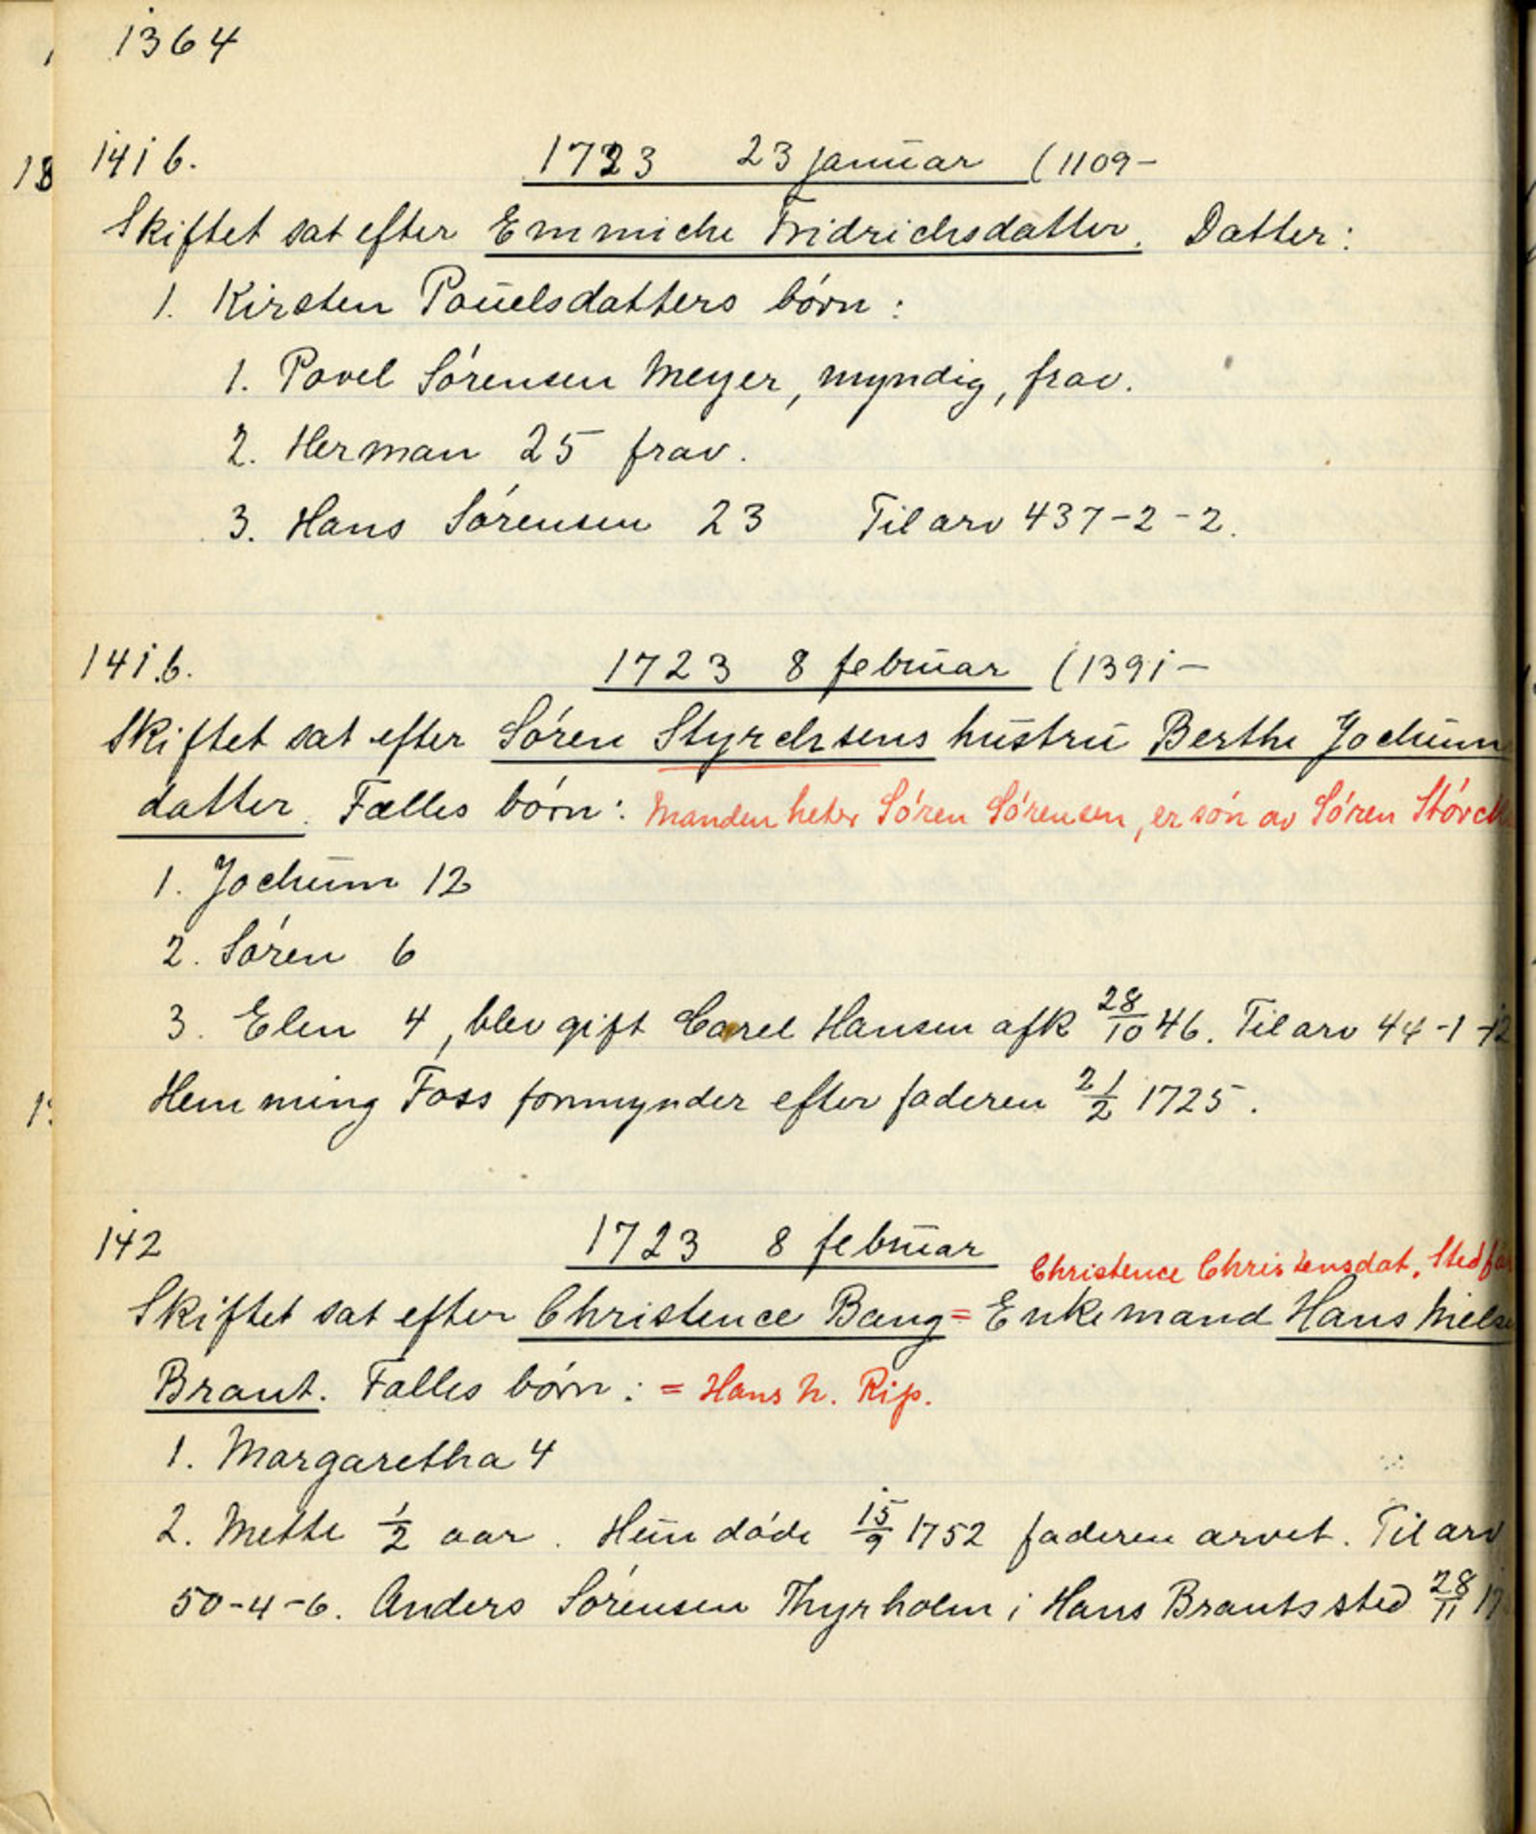 1364
141 b. 1723 23 januar (1109-
Skiftet sat efter Emmiche Fridrichsdatter. Datter:
1. Kirsten Pouelsdatters børn:
1. Povel Sørensen Meyer, myndig, frav.
2. Herman 25 frav.
3. Hans Sørensen 23 Til arv 437-2-2.
141 b. 1723 8 februar (1391-
Skiftet sat efter Søren Styrchsens hustru Berthe Jochum
datter. Fælles børn: Manden heter Søren Sørensen, er søn av Søren
1. Jochum 12
2. Søren 6
3. Elen 4, blev gift Carel Hansen afk 28/10 46. Til arv 44-1-12
Hemming Foss formynder efter faderen 21/2 1725.
142 1723 8 februar
Christence Christensdat.
Skiftet sat efter Christence Bang = Enkemand Hans
Brant. Fælles børn: = Hans N. Rip.
1. Margaretha 4
2. Mette 1/2 aar. Hun døde 15/9 1752 faderen arvet. Til arv
50-4-6. Anders Sørensen Thyrholm i Hans Brants sted 28/11